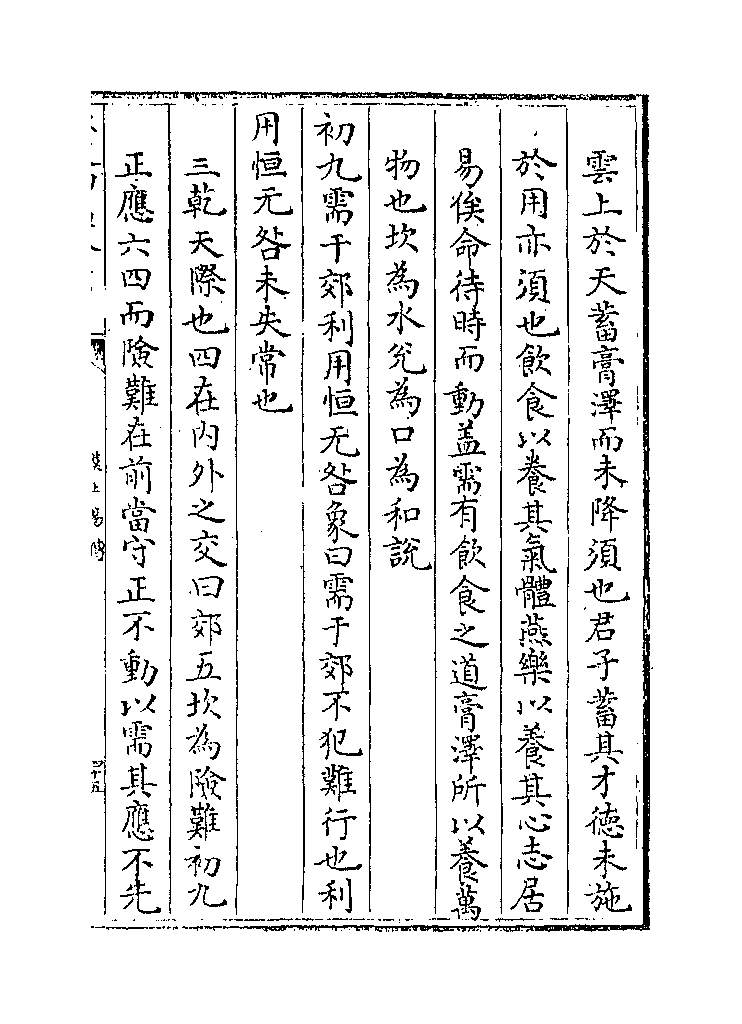 雲上於天蓄膏澤而未降須也君子蓄其才徳未施
於用亦須也飲食以養其氣體燕樂以養其心志居
易俟命待時而動盖需有飲食之道膏澤所以養萬
物也坎為水兌為口為和說
初九需于郊利用恒无咎象曰需于郊不犯難行也利
用恒无咎未失常也
三乾天際也四在内外之交曰郊五坎為險難初九
正應六四而險難在前當守正不動以需其應不先
漢上易傳
四十五